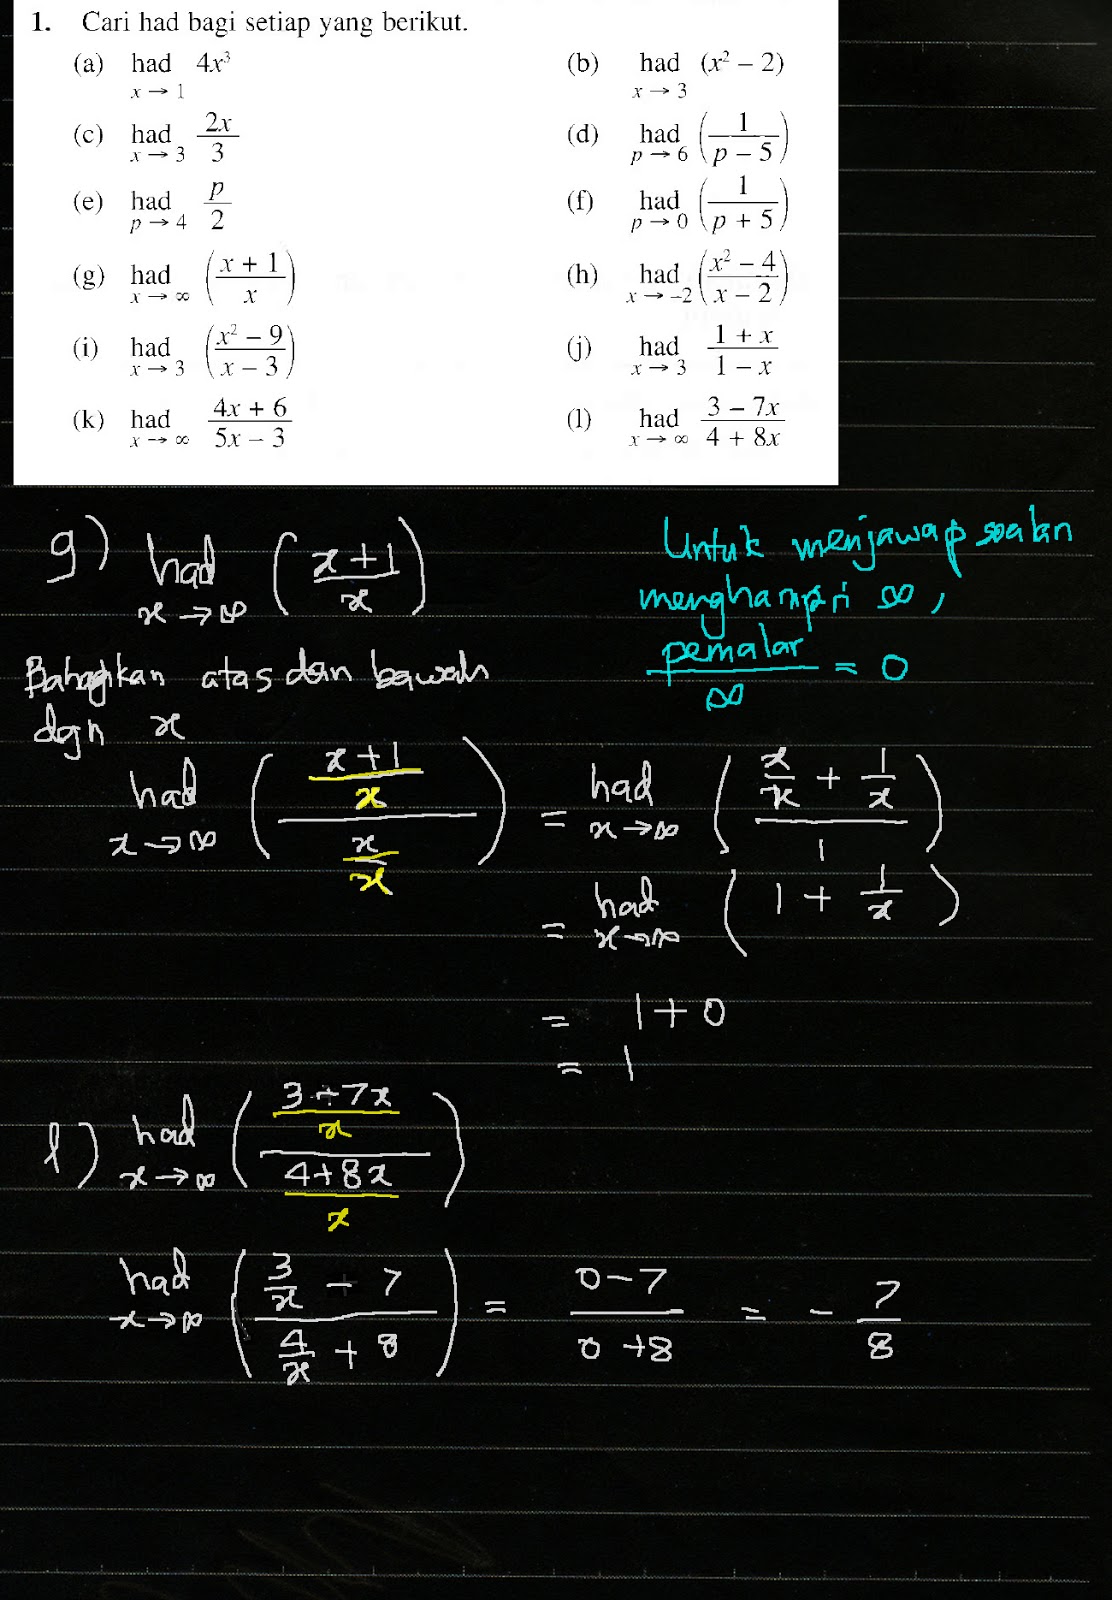 1. Cari had bagi setiap yang berikut.
(a) had 4x³
x → 1
(b) had (x² – 2)
x → 3
(c) had 2x/3
x → 3
(d) had (1/(p – 5))
p → 6
(e) had p/2
p → 4
(f) had (1/(p + 5))
p → 0
(g) had ((x + 1)/x)
x → ∞
(h) had ((x² – 4)/(x – 2))
x → –2
(i) had ((x² – 9)/(x – 3))
x → 3
(j) had (1 + x)/(1 – x)
x → 3
(k) had (4x + 6)/(5x – 3)
x → ∞
(l) had (3 – 7x)/(4 + 8x)
x → ∞
g) had ((x + 1)/x)
x → ∞
Untuk menjawap soalan
menghampiri ∞,
pemalar/∞ = 0
Bahagikan atas dan bawah
dgn x
had (((x + 1)/x)/(x/x)) = had ((x/x + 1/x)/1)
x → ∞ x → ∞
= had (1 + 1/x)
x → ∞
= 1 + 0
= 1
l) had (((3 + 7x)/x)/((4 + 8x)/x))
x → ∞
had ((3/x – 7)/(4/x + 8)) = (0 – 7)/(0 + 8) = – 7/8
x → ∞